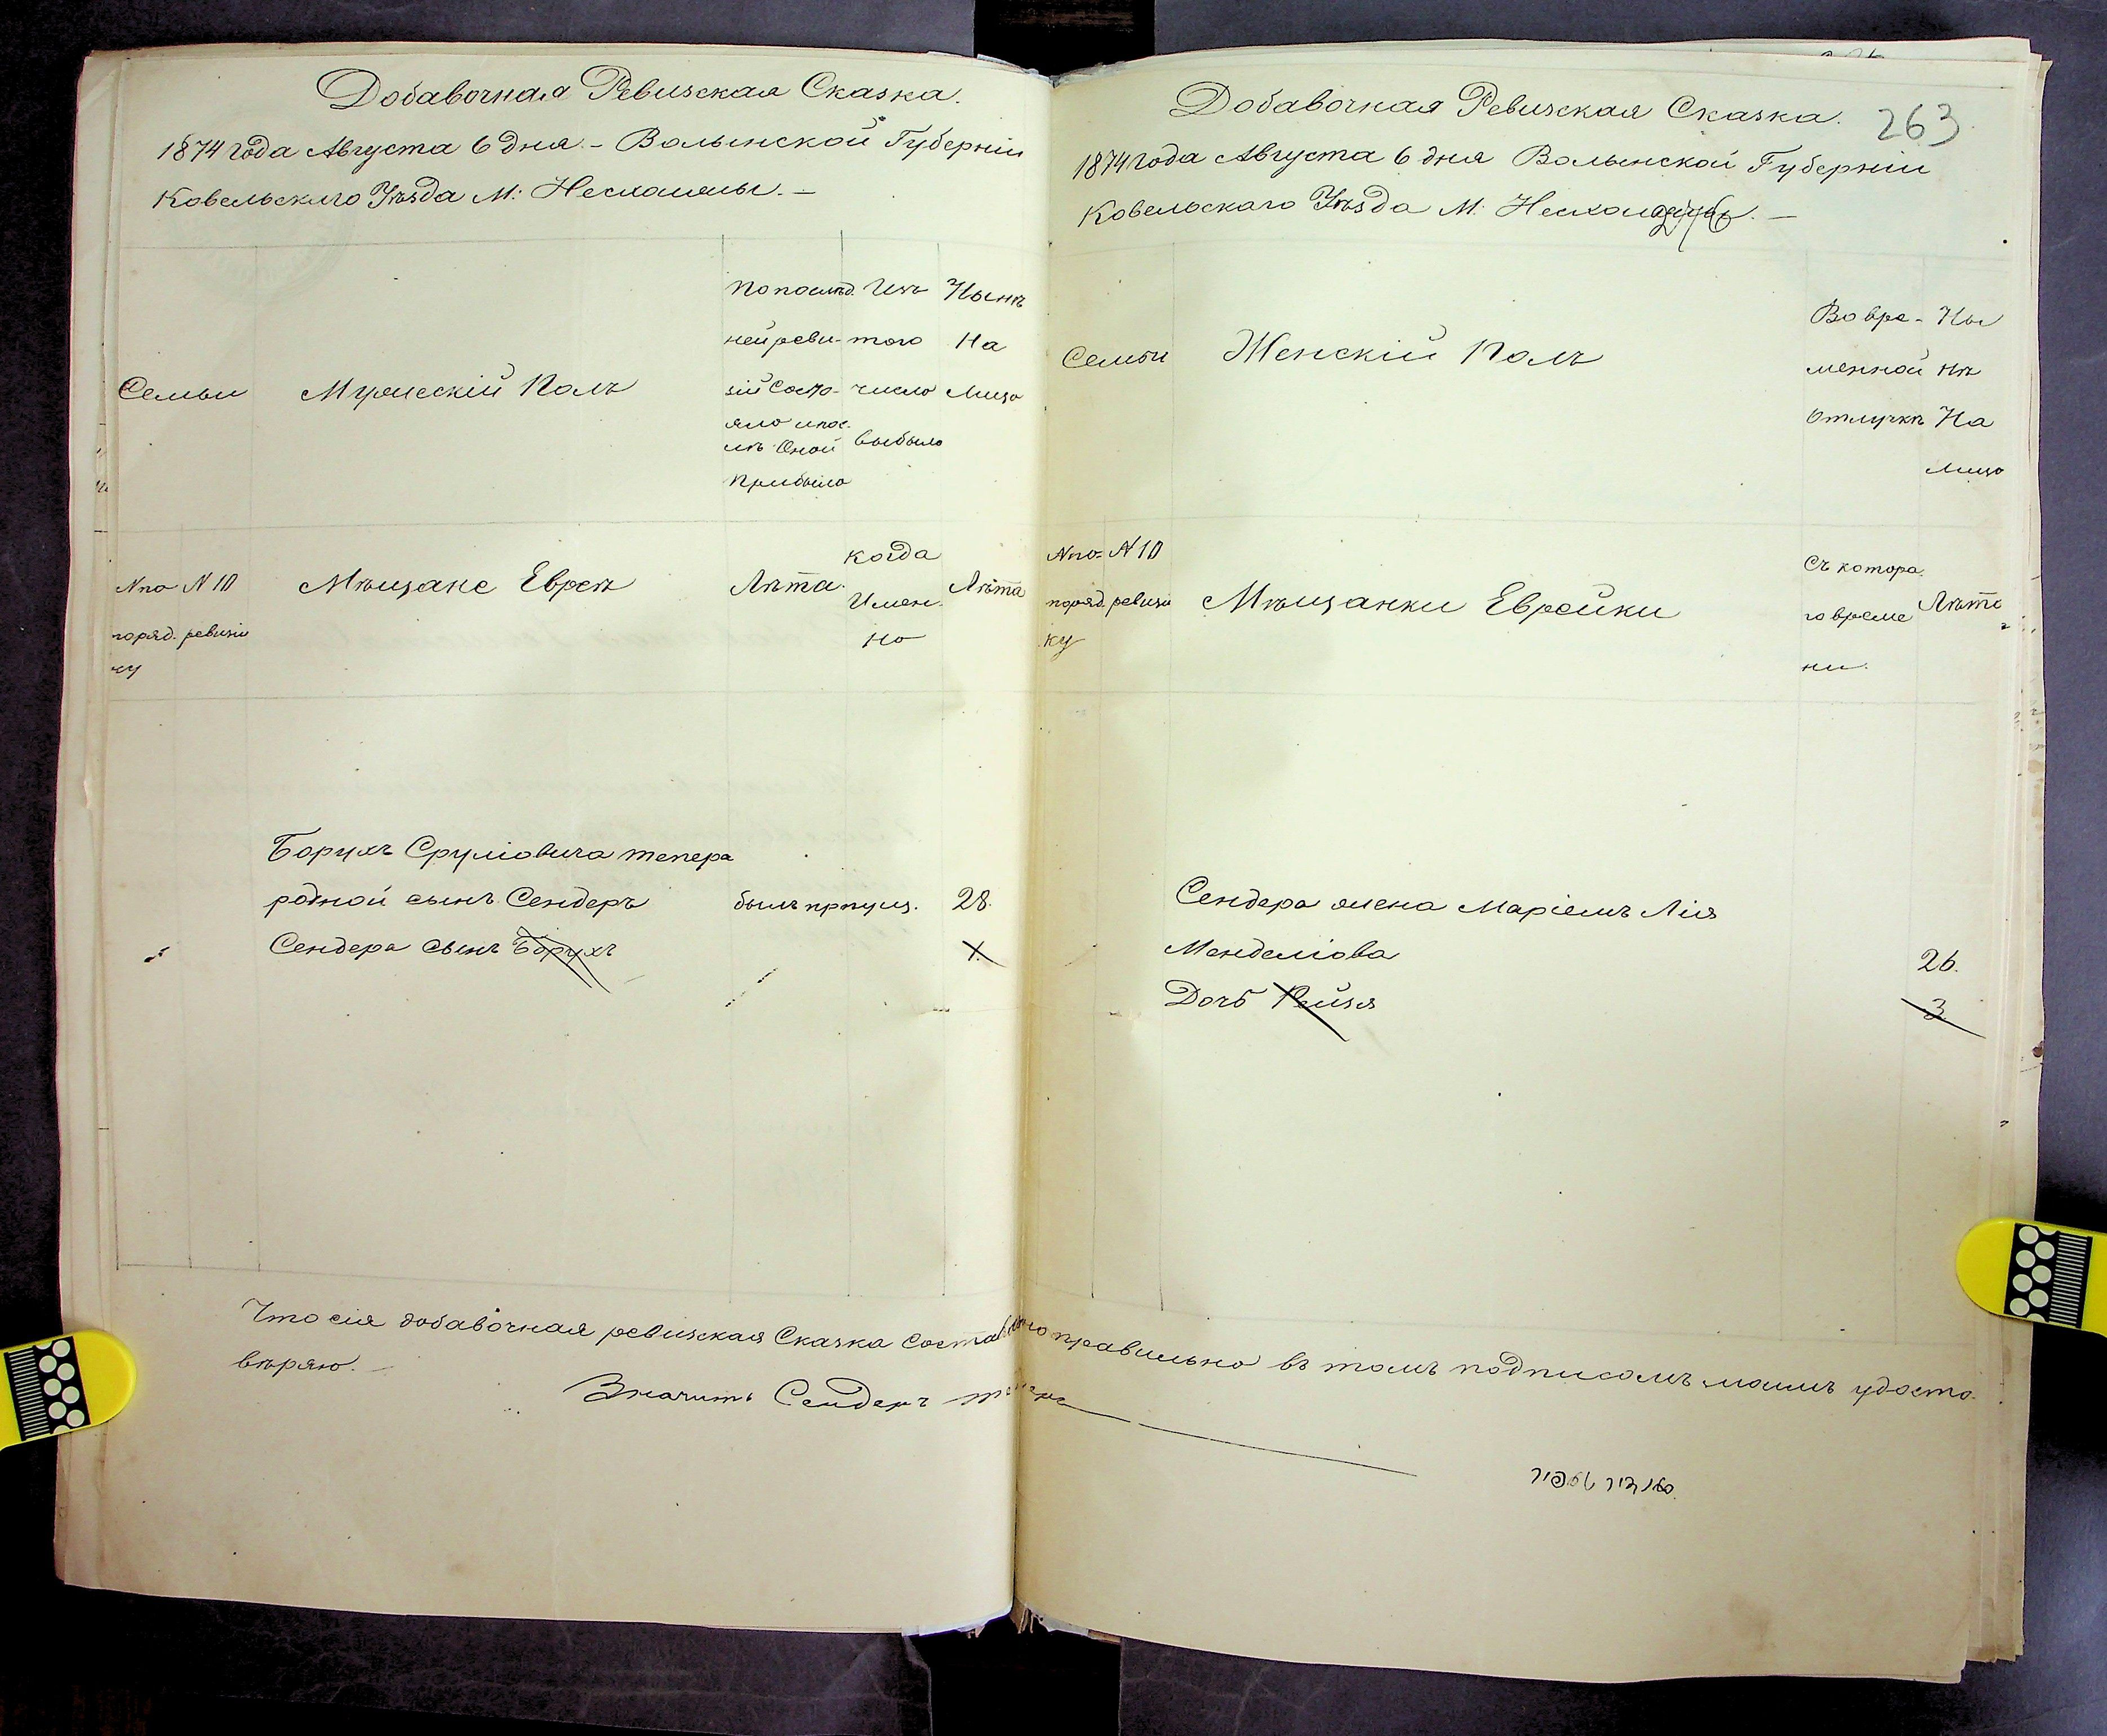 Добавочная Ревизская Сказка.
1874 года Августа 6 дня. – Волынской Губерніи
Ковельскаго Уѣзда М: Несхоижы. –
Семьи
Мужескій Полъ
По послѣд.
ней реви-
зій Состо-
яло и пос.
лѣ Оной
Прибыло
Изъ
того
число
выбыло
Нынѣ
На
Лицо
N по
поряд.
ку
N 10
ревизіи
Мѣщане Евреѣ
Лѣта.
когда
Имен.
но
Лѣта
Борухъ Сруліовича тепера
родной сынъ Сендеръ был пропущ. 28.
Сендера сынъ Борухъ 1.
Добавочная Ревизская Сказка.
263
1874 года Августа 6 дня Волынской Губерніи
Ковельскаго Уѣзда М:
276
Семьи
Женскій Полъ
Во вре-
менной
Отлучкѣ
Ны
нѣ
На
лицо
N по-
поряд.
ку
N 10
ревизи
Мѣщанки Еврейки
Съ котора.
го време
ни.
Лѣта
Сендера жена Маріемъ Лія
Менделіова 26.
Дочь Рейзя 3
Что сія добавочная ревизская Сказка составлено правильно въ томъ подписомъ моимъ удосто.
вѣряю. –
Значитъ Сендеръ тепера